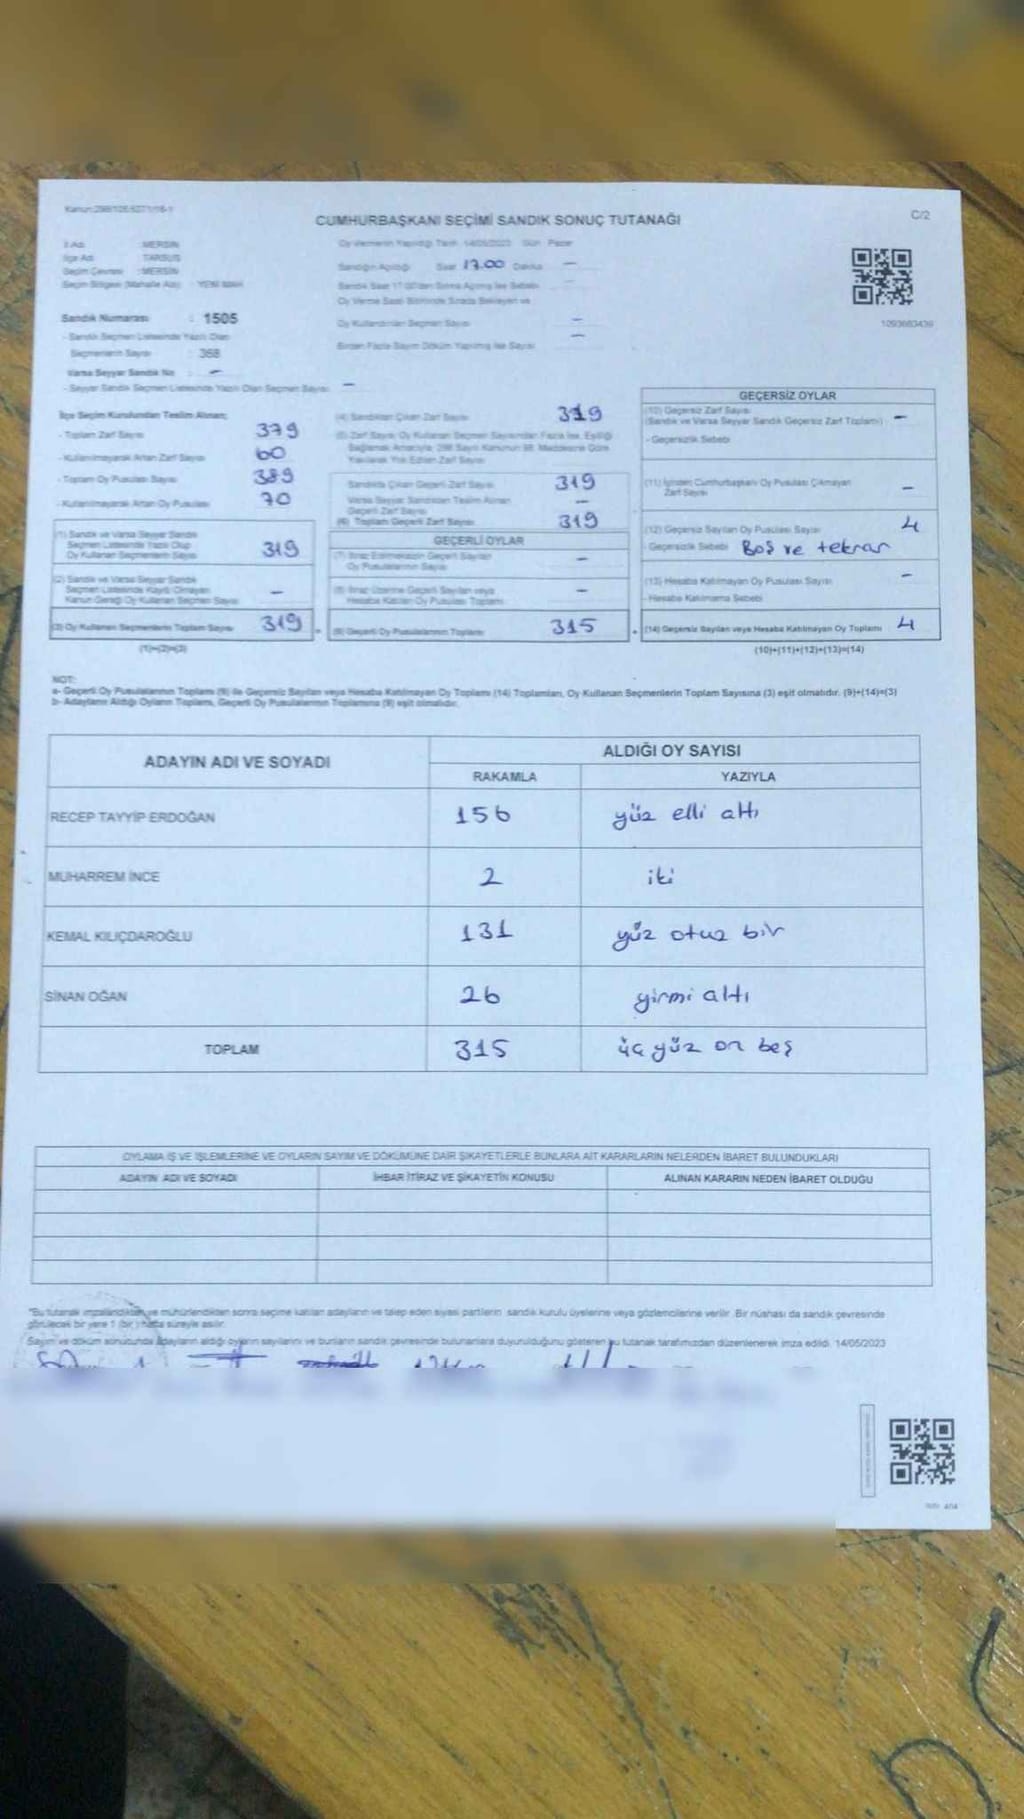 C/2
CUMHURBAŞKANI SEÇİMİ SANDIK SONUÇ TUTANAĞI
İl Adı : MERSİN
İlçe Adı : TARSUS
Seçim Çevresi : MERSİN
Seçim Bölgesi (Mahalle Adı) : YENİ MAH
Sandık Numarası : 1505
- Sandık Seçmen Listesinde Yazılı Olan
Seçmenlerin Sayısı : 368
Varsa Seyyar Sandık No : -
- Seyyar Sandık Seçmen Listesinde Yazılı Olan Seçmen Sayısı -
Oy Vermenin Yapıldığı Tarih 14/05/2023 Gün Pazar
Sandığın Açıldığı Saat 17.00 Dakika -
Sandık Saat 17.00'den Sonra Açılmış İse Sebebi
Oy Verme Saati Bitiminde Sırada Bekleyen ve
Oy Kullandırılan Seçmen Sayısı -
Birden Fazla Sayım Döküm Yapılmış İse Sayısı -
1093683439
İlçe Seçim Kurulundan Teslim Alınan;
- Toplam Zarf Sayısı 379
- Kullanılmayarak Artan Zarf Sayısı 60
- Toplam Oy Pusulası Sayısı 389
- Kullanılmayarak Artan Oy Pusulası 70
(1) Sandık ve Varsa Seyyar Sandık
Seçmen Listesinde Yazılı Olup
Oy Kullanan Seçmenlerin Sayısı 319
(2) Sandık ve Varsa Seyyar Sandık
Seçmen Listesinde Kayıtlı Olmayan
Kanun Gereği Oy Kullanan Seçmen Sayısı -
(3) Oy Kullanan Seçmenlerin Toplam Sayısı 319
(1)+(2)=(3)
(4) Sandıktan Çıkan Zarf Sayısı 319
(5) Zarf Sayısı Oy Kullanan Seçmen Sayısından Fazla İse, Eşitliği
Sağlamak Amacıyla, 298 Sayılı Kanunun 98. Maddesine Göre
Yakılarak Yok Edilen Zarf Sayısı
Sandıkta Çıkan Geçerli Zarf Sayısı 319
Varsa Seyyar Sandıktan Teslim Alınan
Geçerli Zarf Sayısı -
(6) Toplam Geçerli Zarf Sayısı 319
GEÇERLİ OYLAR
(7) İtiraz Edilmeksizin Geçerli Sayılan
Oy Pusulalarının Sayısı -
(8) İtiraz Üzerine Geçerli Sayılan veya
Hesaba Katılan Oy Pusulası Toplamı -
(9) Geçerli Oy Pusulalarının Toplamı 315
GEÇERSİZ OYLAR
(10) Geçersiz Zarf Sayısı
(Sandık ve Varsa Seyyar Sandık Geçersiz Zarf Toplamı) -
- Geçersizlik Sebebi
(11) İçinden Cumhurbaşkanı Oy Pusulası Çıkmayan
Zarf Sayısı -
(12) Geçersiz Sayılan Oy Pusulası Sayısı 4
- Geçersizlik Sebebi Boş ve tekrar
(13) Hesaba Katılmayan Oy Pusulası Sayısı -
- Hesaba Katılmama Sebebi
(14) Geçersiz Sayılan veya Hesaba Katılmayan Oy Toplamı 4
(10)+(11)+(12)+(13)=(14)
NOT:
a- Geçerli Oy Pusulalarının Toplamı (9) ile Geçersiz Sayılan veya Hesaba Katılmayan Oy Toplamı (14) Toplamları, Oy Kullanan Seçmenlerin Toplam Sayısına (3) eşit olmalıdır. (9)+(14)=(3)
b- Adayların Aldığı Oyların Toplamı, Geçerli Oy Pusulalarının Toplamına (9) eşit olmalıdır.
ADAYIN ADI VE SOYADI
ALDIĞI OY SAYISI
RAKAMLA YAZIYLA
RECEP TAYYİP ERDOĞAN 156 yüz elli altı
MUHARREM İNCE 2 iki
KEMAL KILIÇDAROĞLU 131 yüz otuz bir
SİNAN OĞAN 26 yirmi altı
TOPLAM 315 üç yüz on beş
OYLAMA İŞ VE İŞLEMLERİNE VE OYLARIN SAYIM VE DÖKÜMÜNE DAİR ŞİKAYETLERLE BUNLARA AİT KARARLARIN NELERDEN İBARET BULUNDUKLARI
ADAYIN ADI VE SOYADI İHBAR İTİRAZ VE ŞİKAYETİN KONUSU ALINAN KARARIN NEDEN İBARET OLDUĞU
"Bu tutanak imzalandıktan ve mühürlendikten sonra seçime katılan adayların ve talep eden siyasi partilerin sandık kurulu üyelerine veya gözlemcilerine verilir. Bir nüshası da sandık çevresinde
görülecek bir yere 1 (bir) hafta süreyle asılır.
Sayım ve döküm sonucunda adayların aldığı oyların sayılarını ve bunların sandık çevresinde bulunanlara duyurulduğunu gösteren bu tutanak tarafımızdan düzenlenerek imza edildi. 14/05/2023